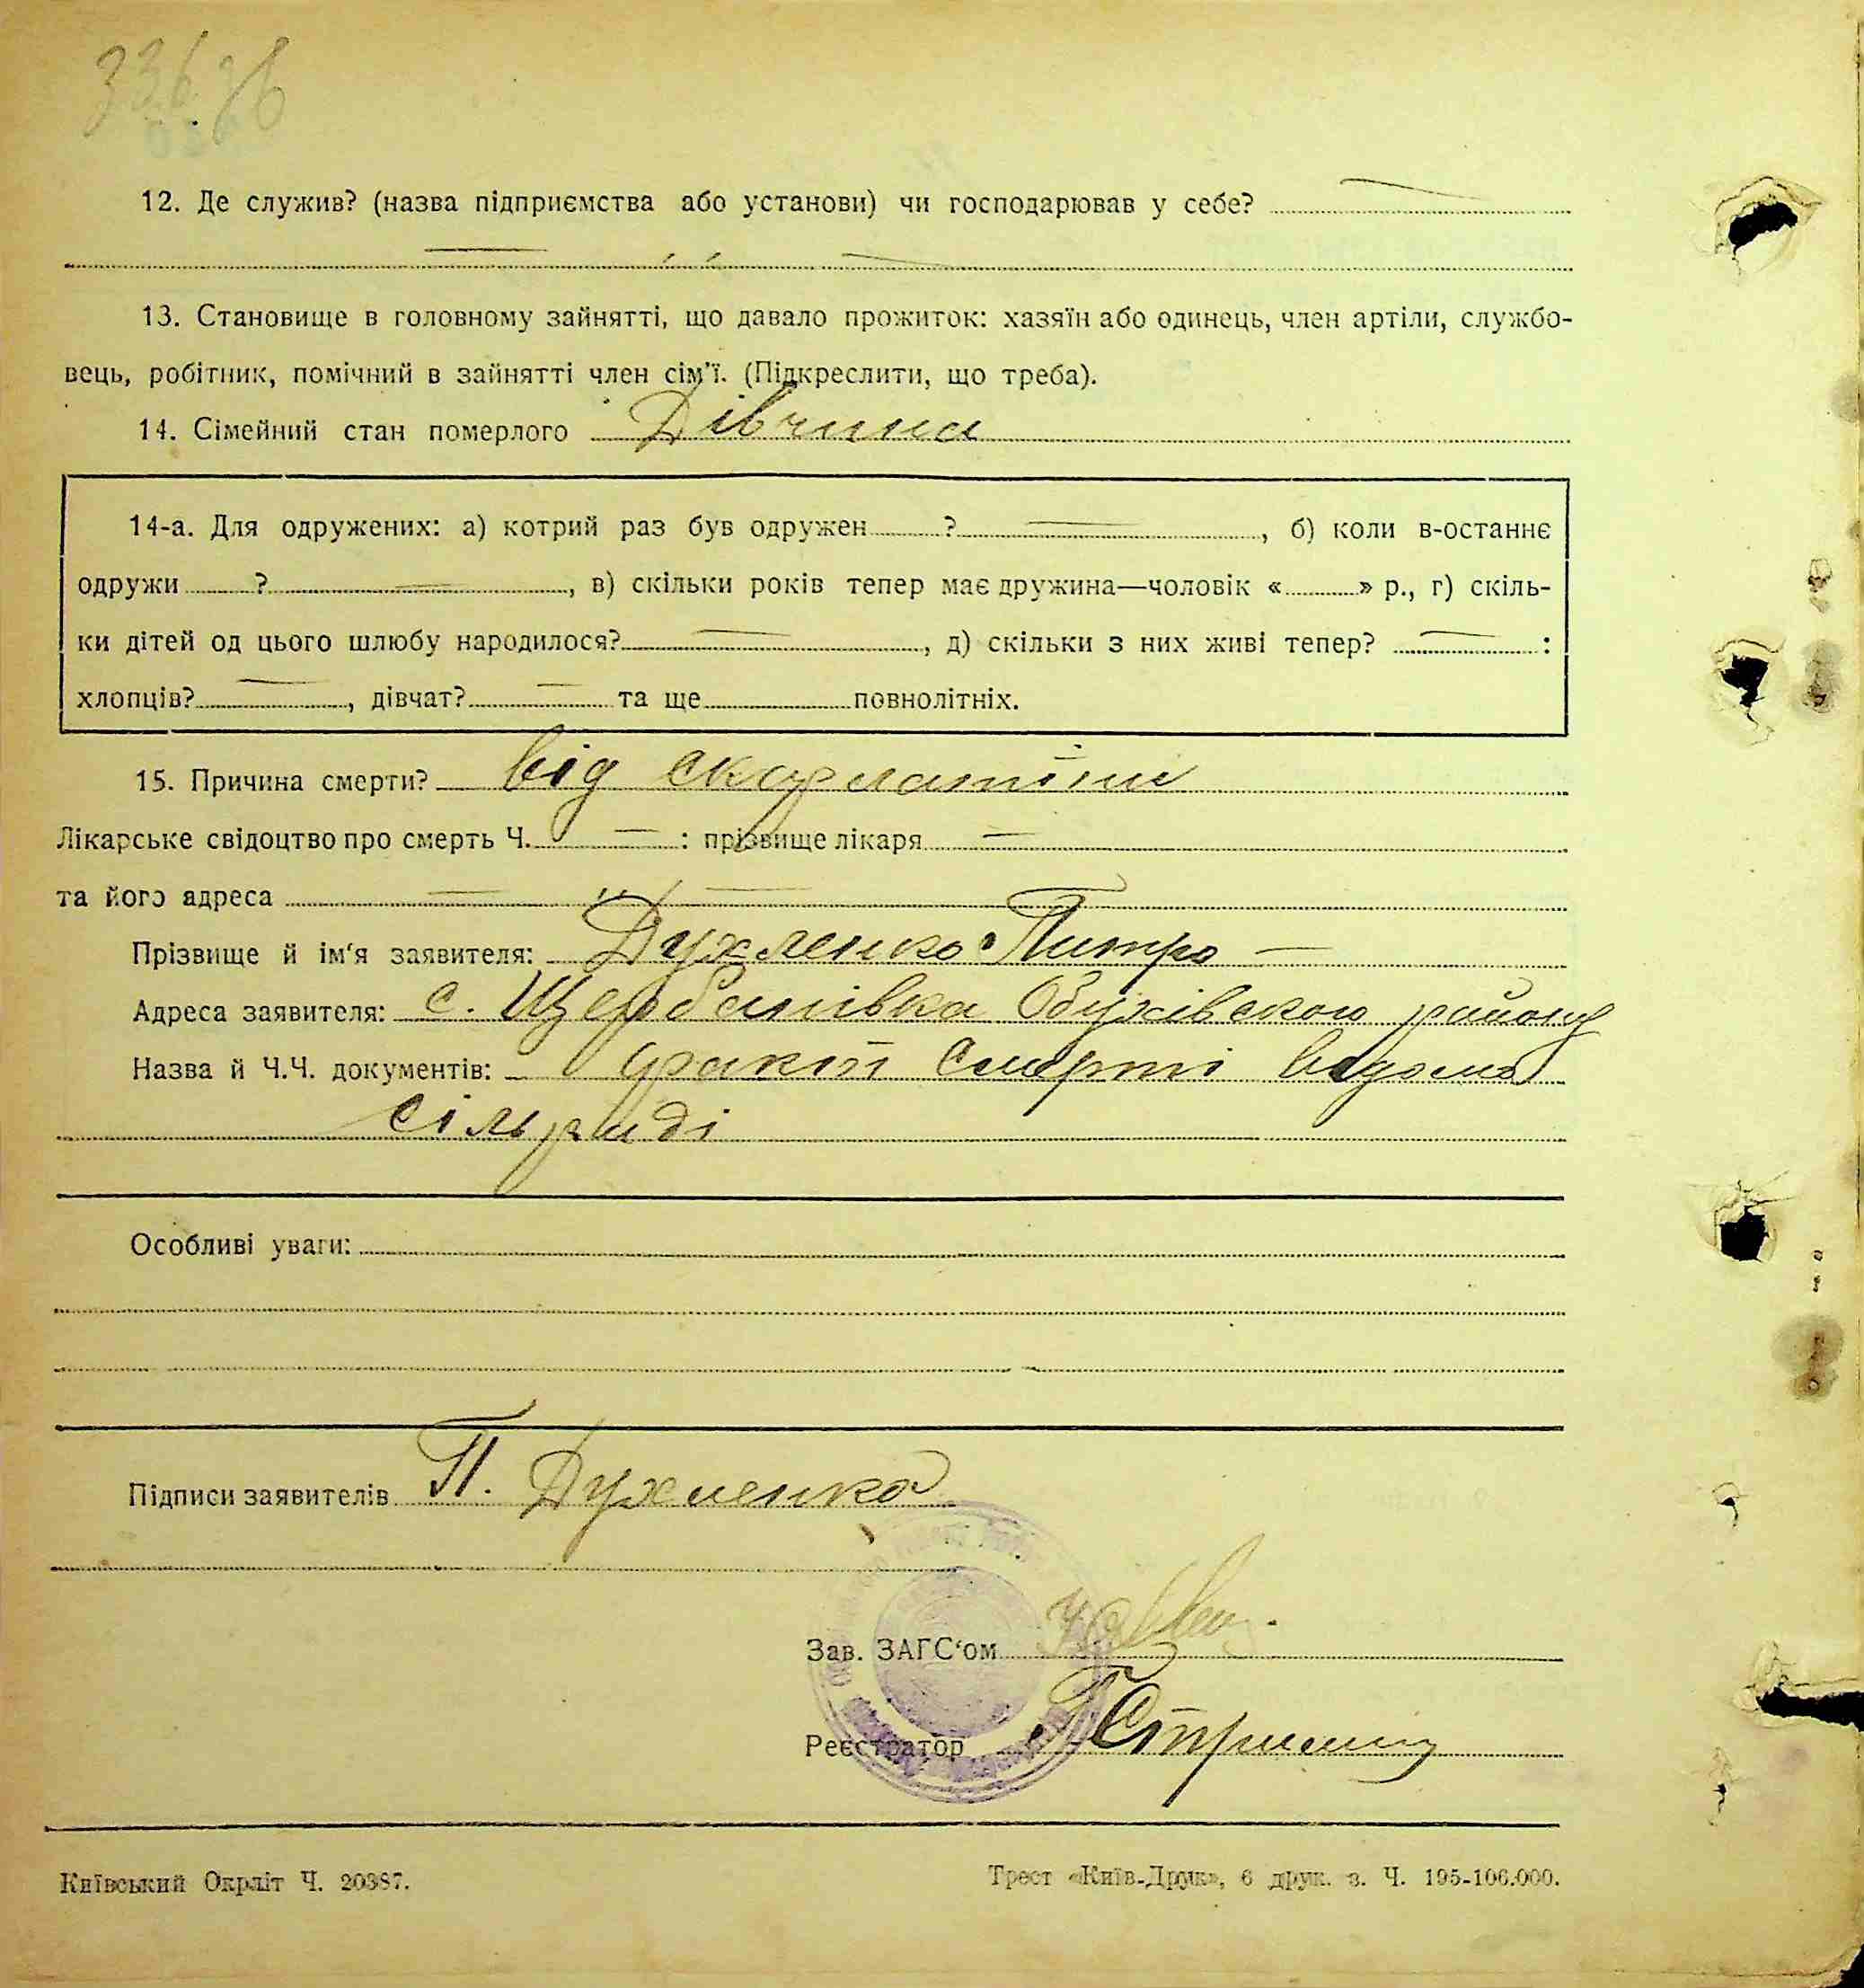 12. Де служив? (назва підприємства або установи) чи господарював у себе?
13. Становище в головному зайнятті, що давало прожиток: хазяїн або одинець, член артіли, службо-
вець, робітник, помічний в зайнятті член сім'ї. (Підкреслити, що треба).
14. Сімейний стан померлого Дівчина
14-а. Для одружених: а) котрий раз був одружен ? , б) коли в-останнє
одружи ? , в) скільки років тепер має дружина—чоловік « » р., г) скіль-
ки дітей од цього шлюбу народилося? , д) скільки з них живі тепер? :
хлопців? , дівчат? та ще повнолітніх.
15. Причина смерти? від скарлатіни
Лікарське свідоцтво про смерть Ч. — : прізвище лікаря —
та його адреса
Прізвище й ім'я заявителя: Духленко Питро —
Адреса заявителя: с. Щербанівка Обухівского району
Назва й Ч.Ч. документів: факт смерті відома
сільраді
Особливі уваги:
Підписи заявителів П. Духленко
Зав. ЗАГС'ом
Реєстратор
Київський Окрліт Ч. 20387.
Трест «Київ-Друк», 6 друк. з. Ч. 195-106.000.